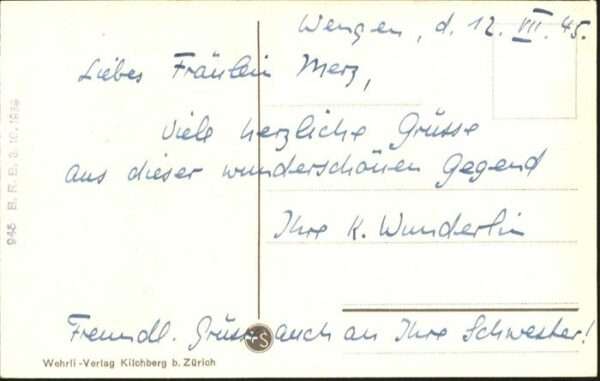 Wengen, d. 12. VII. 45.
Liebes Fräulein Merz,
Viele herzliche Grüsse
aus dieser wunderschönen Gegend
Ihre K. Wunderlin
Freundl. Grüsse auch an Ihre Schwester!
Wehrli-Verlag Kilchberg b. Zürich
945 B. R. B. 3. 10. 1932